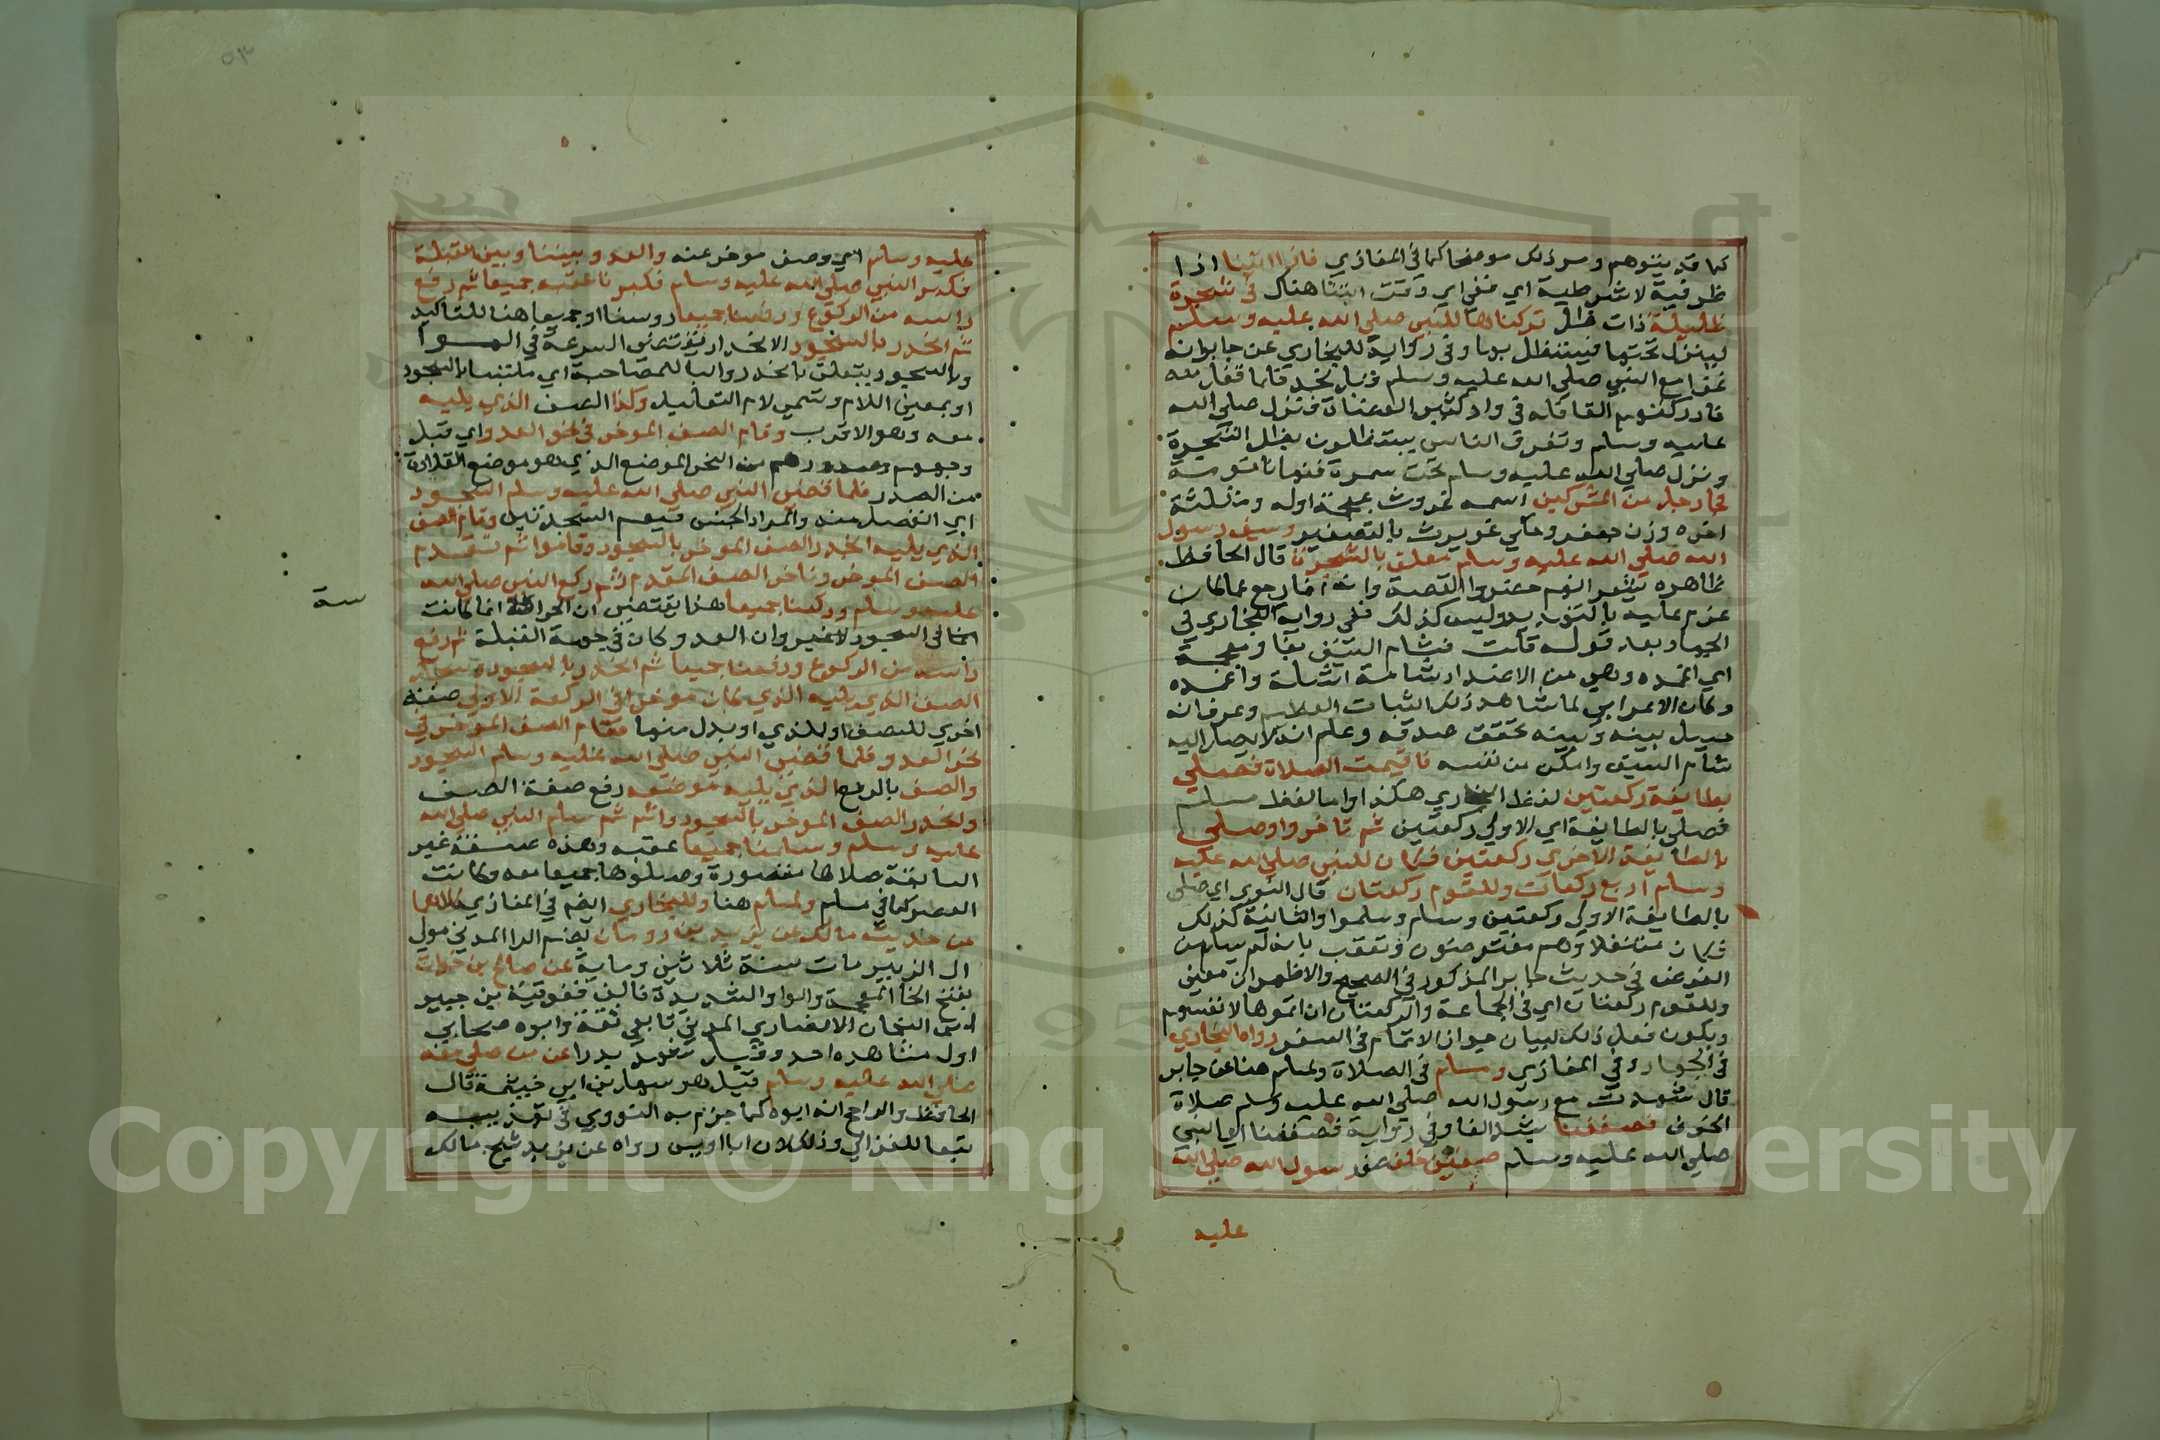 كما قد ينوهم ومر ذلك موضحا كما في المغازي فاذا اتينا اذا
ظرفية لا شرطية اي ففي اي وقت اتينا هناك في شجرة
ظليلة ذات ظل تركناها للنبي صلي الله عليه وسلم
لينزل تحتها فيستظل بها وفي رواية للبخاري عن جابر انه
غزا مع النبي صلي الله عليه وسلم قبل نجد فلما قفل معه
فادركتهم القافله في واد كثير العضاة فنزل صلي الله
عليه وسلم وتفرق الناس يستظلون بظل الشجرة
ونزل صلي الله عليه وسلم تحت سمرة فنمنا نومة
فجا رجل من المشركين اسمه غورث بمعجمة اوله ومثلثة
اخره وزن جعفر وحكي غويرث بالتصغير وسيف رسول
الله صلي الله عليه وسلم معلق بالشجرة قال الحافظ
ظاهره يشعر انهم حضروا القصة وانه انما رجع عما كان
عزم عليه بالتهديد وليس كذلك ففي رواية البخاري في
الجهاد بعد قوله قلت فشام السيف بفا ومعجمة
اي اغمده وهي من الاضداد شامه استله واغمده
وكان الاعرابي لما شاهد ذلك الثبات العظيم وعرف انه
حيل بينه وبينه تحقق صدقه وعلم انه لا يصل اليه
شام السيف وامكن من نفسه فاقيمت الصلاة فصلي
بطايفة ركعتين لفظ البخاري هكذا واما لفظ مسلم
فصلي بالطايفة اي الاولي ركعتين ثم تاخروا وصلي
بالطايفة الاخري ركعتين فكان للنبي صلي الله عليه
وسلم اربع ركعات وللقوم ركعتان قال النووي اي صلي
بالطايفة الاولي ركعتين وسلم وسلموا والثانية كذلك
فكان متنفلا وهم مفترضون وتعقب بانه لم يسلم من
الفرض في حديث جابر المذكور في الصحيح والاظهر ان معني
وللقوم ركعتان اي في الجماعة والركعتان ان اتموها لانفسهم
ويكون فعل ذلك لبيان جواز الاتمام في السفر رواه البخاري
في الجهاد وفي المغازي ومسلم في الصلاة ولمسلم هنا عن جابر
قال شهدت مع رسول الله صلي الله عليه وسلم صلاة
الخوف فصففنا بشد الفا وفي رواية فصففنا اي النبي
صلي الله عليه وسلم صفين خلف رسول الله صلي الله
عليه
٥٣
عليه وسلم اي وصف موخر عنه والعدو بيننا وبين القبلة
فكبر النبي صلي الله عليه وسلم فكبرنا عقبه جميعا ثم رفع
راسه من الركوع ورفعنا جميعا روسنا وجميعا هنا للتاكيد
ثم انحدر بالسجود الانحدار يقتضي السرعة في الهوا
وبالسجود يتعلق بانحدر والبا للمصاحبة اي ملتبسا بالسجود
او بمعني اللام وتسمي لام التعليل وكذا الصف الذي يليه
معه وهو الاقرب وقام الصف الموخر في نحو العدو اي قبل
وجههم وصدورهم من النحر الموضع الذي هو موضع القلادة
من الصدر فلما قضي النبي صلي الله عليه وسلم السجود
اي انفصل منه والمراد الجنس فيعم السجدتين وقام الصف
الذي يليه انحدر الصف الموخر بالسجود وقاموا ثم تقدم
الصف الموخر وتاخر الصف المقدم ثم ركع النبي صلي الله
عليه وسلم وركعنا جميعا هذا يقتضي ان الحراسة انما كانت
سة
انما في السجود لا غير وان العدو كان في جهة القبلة ثم رفع
راسه من الركوع ورفعنا جميعا ثم انحدر بالسجود
الصف الذي يليه الذي كان موخرا في الركعة الاولي صفة
اخري للصف او للذي او بدل منهما وقام الصف الموخر في
نحر العدو فلما قضي النبي صلي الله عليه وسلم السجود
والصف بالرفع الذي يليه موضعه رفع صفة الصف
وانحدر الصف الموخر بالسجود وانثم ثم سلم النبي صلي الله
عليه وسلم وسلمنا جميعا عقبه وهذه صفة غير
السابقة صلاها مقصورة وصلوها جميعا معه وكانت
العصر كما في مسلم ولمسلم هنا وللبخاري ايضا في المغازي كلاهما
من حديث مالك عن يزيد بن رومان بضم الرا المدني مولي
ال الزبير مات سنة ثلاثين وماية عن صالح بن خوات
بفتح الخا المعجمة والواو الشديدة فالف ففوقية بن جبير
بن النعمان الانصاري المدني تابعي ثقة وابوه صحابي
اول مشاهده احد وقيل شهد بدرا عن من صلي معه
صلي الله عليه وسلم قيل هو سهل بن ابي خيثمة قال
الحافظ والراجح انه ابوه كما جزم به النووي في تهذيبه
تبعا للغزالي وذلك لان ابا اويس رواه عن يزيد شيخ مالك